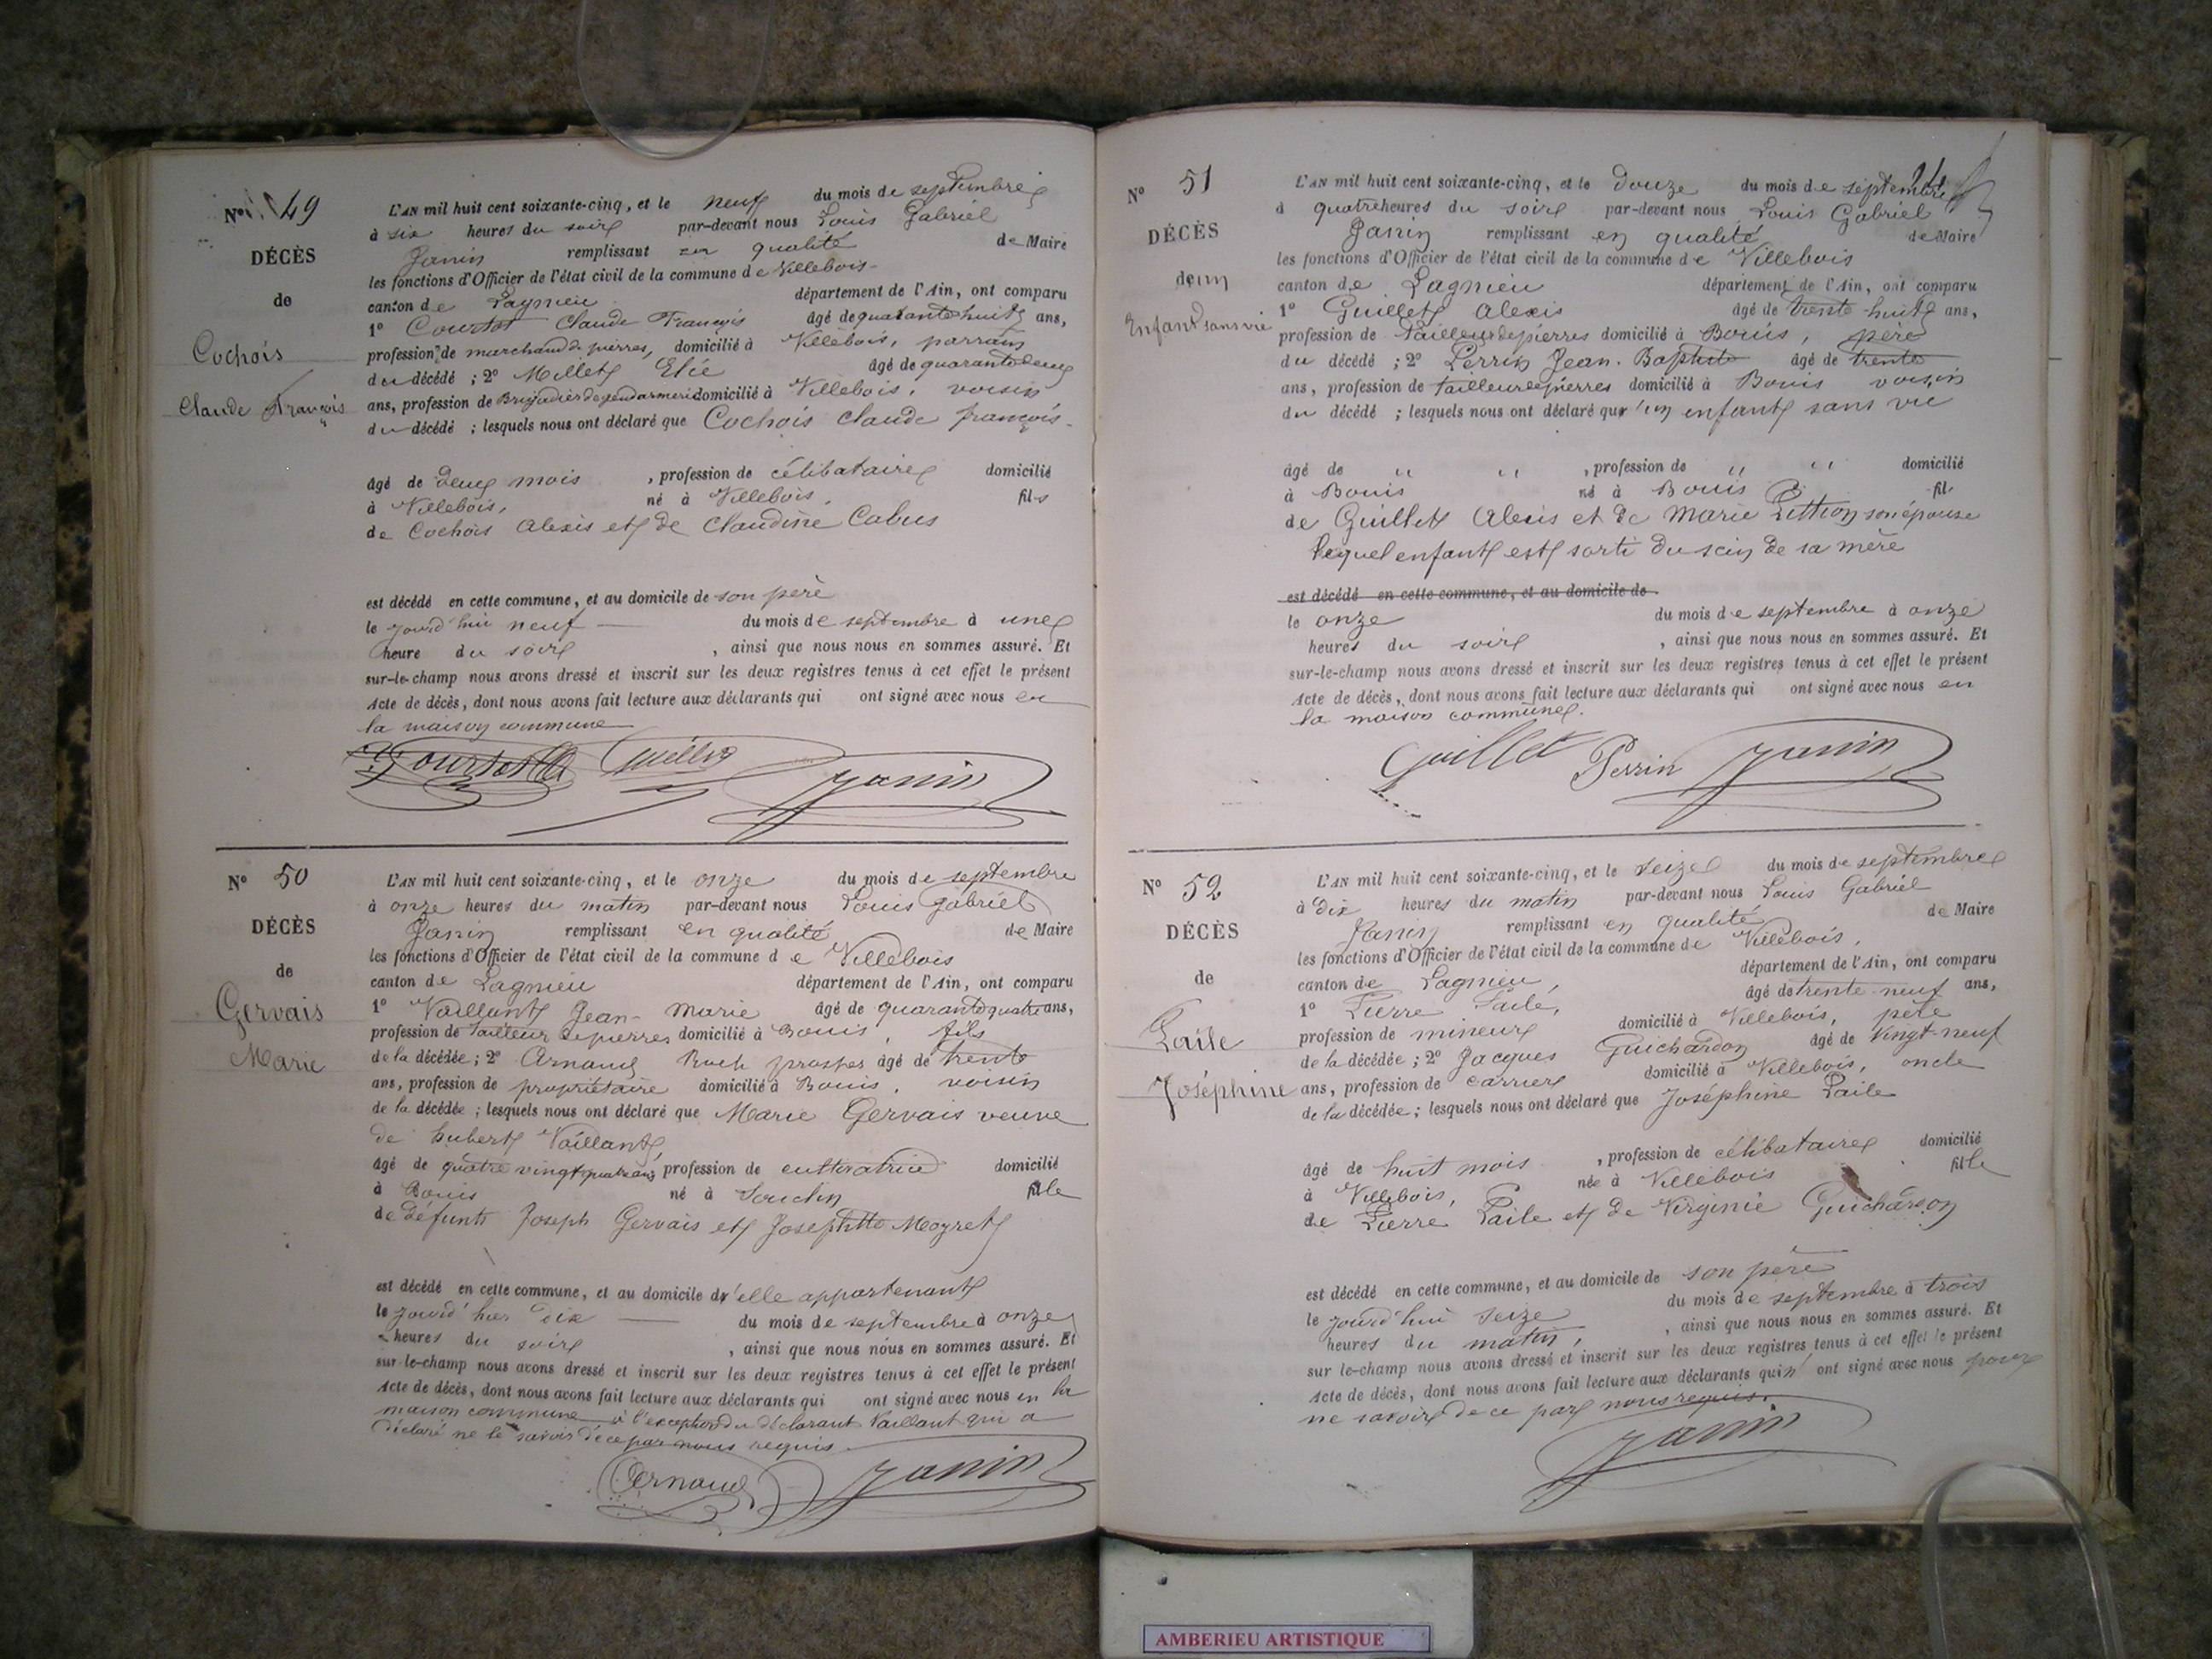 N° 49
DÉCÈS
de
Cochois
Claude François
L'AN mil huit cent soixante-cinq, et le neuf du mois de septembre
à six heures du soir par-devant nous Louis Gabriel
Janin remplissant en qualité de Maire
les fonctions d'Officier de l'état civil de la commune de Villebois
canton de Lagnieu département de l'Ain, ont comparu
1° Courtot Claude François âgé de quarante huit ans,
profession de marchand de pierres, domicilié à Villebois, parrain
du décédé ; 2° Millet Elie âgé de quarante deux
ans, profession de Brigadier de gendarmerie domicilié à Villebois, voisin
du décédé ; lesquels nous ont déclaré que Cochois Claude françois
âgé de deux mois, profession de célibataire domicilié
à Villebois, né à Villebois, fils
de Cochois Alexis et de Claudine Cabus
est décédé en cette commune, et au domicile de son père
le jourd'hui neuf du mois de septembre à une
heure du soir, ainsi que nous nous en sommes assuré. Et
sur-le-champ nous avons dressé et inscrit sur les deux registres tenus à cet effet le présent
Acte de décès, dont nous avons fait lecture aux déclarants qui ont signé avec nous en
la maison commune
Janin
N° 50
DÉCÈS
de
Gervais
Marie
L'AN mil huit cent soixante-cinq, et le onze du mois de septembre
à onze heures du matin par-devant nous Louis Gabriel
Janin remplissant en qualité de Maire
les fonctions d'Officier de l'état civil de la commune de Villebois
canton de Lagnieu département de l'Ain, ont comparu
1° Vaillant Jean-Marie âgé de quarante quatre ans,
profession de Tailleur de pierres domicilié à Bouis, fils
de la décédée ; 2° Arnaud Roch prosper âgé de trente
ans, profession de propriétaire domicilié à Bouis, voisin
de la décédée ; lesquels nous ont déclaré que Marie Gervais veuve
de hubert Vaillant,
âgé de quatre vingt quatre ans profession de cultivatrice domicilié
à Bouis né à Souclin fille
de défunts Joseph Gervais et Josephtte Moyret
est décédé en cette commune, et au domicile d'elle appartenant
le jourd'hier dix du mois de septembre à onze
heures du soir, ainsi que nous nous en sommes assuré. Et
sur-le-champ nous avons dressé et inscrit sur les deux registres tenus à cet effet le présent
Acte de décès, dont nous avons fait lecture aux déclarants qui ont signé avec nous en la
maison commune à l'exception du déclarant Vaillant qui a
déclaré ne le savoir de ce par nous requis.
Arnaud Janin
N° 51
DÉCÈS
d'un
Enfant sans vie
L'AN mil huit cent soixante-cinq, et le douze du mois de septembre
à quatre heures du soir par-devant nous Louis Gabriel
Janin remplissant en qualité de Maire
les fonctions d'Officier de l'état civil de la commune de Villebois
canton de Lagnieu département de l'Ain, ont comparu
1° Guillet Alexis âgé de trente-huit ans,
profession de Tailleur de pierres domicilié à Bouis, père
du décédé ; 2° Perrin Jean-Baptiste âgé de trente
ans, profession de tailleur de pierres domicilié à Bouis voisin
du décédé ; lesquels nous ont déclaré qu'un enfant sans vie
âgé de " ", profession de " " domicilié
à Bouis né à Bouis fil
de Guillet Alexis et de Marie son épouse
lequel enfant est sorti du sein de sa mère
est décédé en cette commune, et au domicile de
le onze du mois de septembre à onze
heures du soir, ainsi que nous nous en sommes assuré. Et
sur-le-champ nous avons dressé et inscrit sur les deux registres tenus à cet effet le présent
Acte de décès, dont nous avons fait lecture aux déclarants qui ont signé avec nous en
la maison commune.
Guillet Perrin Janin
N° 52
DÉCÈS
de
Laile
Joséphine
L'AN mil huit cent soixante-cinq, et le seize du mois de septembre
à dix heures du matin par-devant nous Louis Gabriel
Janin remplissant en qualité de Maire
les fonctions d'Officier de l'état civil de la commune de Villebois,
canton de Lagnieu, département de l'Ain, ont comparu
1° Pierre Laile, âgé de trente-neuf ans,
profession de mineur domicilié à Villebois, père
de la décédée ; 2° Jacques Guichardon âgé de Vingt-neuf
ans, profession de carrier domicilié à Villebois, oncle
de la décédée ; lesquels nous ont déclaré que Joséphine Laile
âgé de huit mois, profession de célibataire domicilié
à Villebois, née à Villebois fille
de Pierre Laile et de Virginie Guichardon
est décédé en cette commune, et au domicile de son père
le jourd'hui seize du mois de septembre à trois
heures du matin, ainsi que nous nous en sommes assuré. Et
sur-le-champ nous avons dressé et inscrit sur les deux registres tenus à cet effet le présent
Acte de décès, dont nous avons fait lecture aux déclarants qui n'ont signé avec nous pour
ne savoir de ce par nous requis.
Janin
AMBERIEU ARTISTIQUE